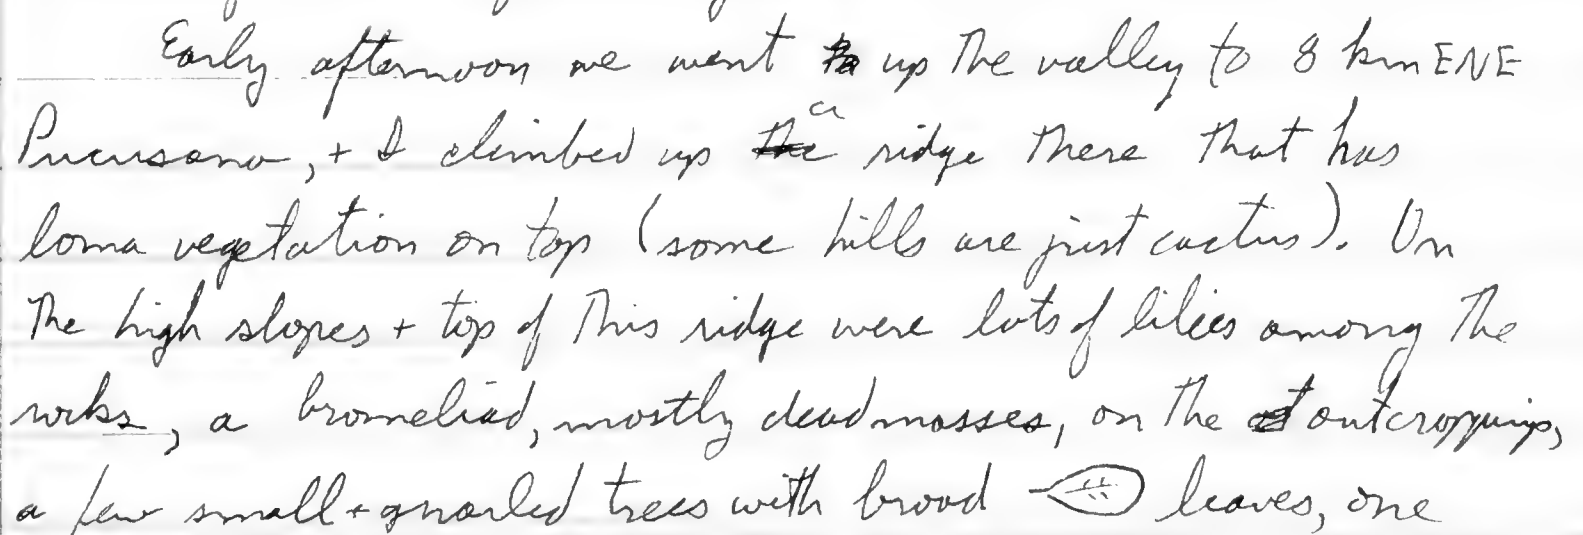 Early afternoon we went up the valley to 8 km ENE
Pucusana, + I climbed up a ridge there that has
loma vegetation on top (some hills are just cactus). On
the high slopes + top of this ridge were lots of lilies among the
rocks, a bromeliad, mostly dead mosses, on the outcroppings,
a few small + gnarled trees with broad leaves, one